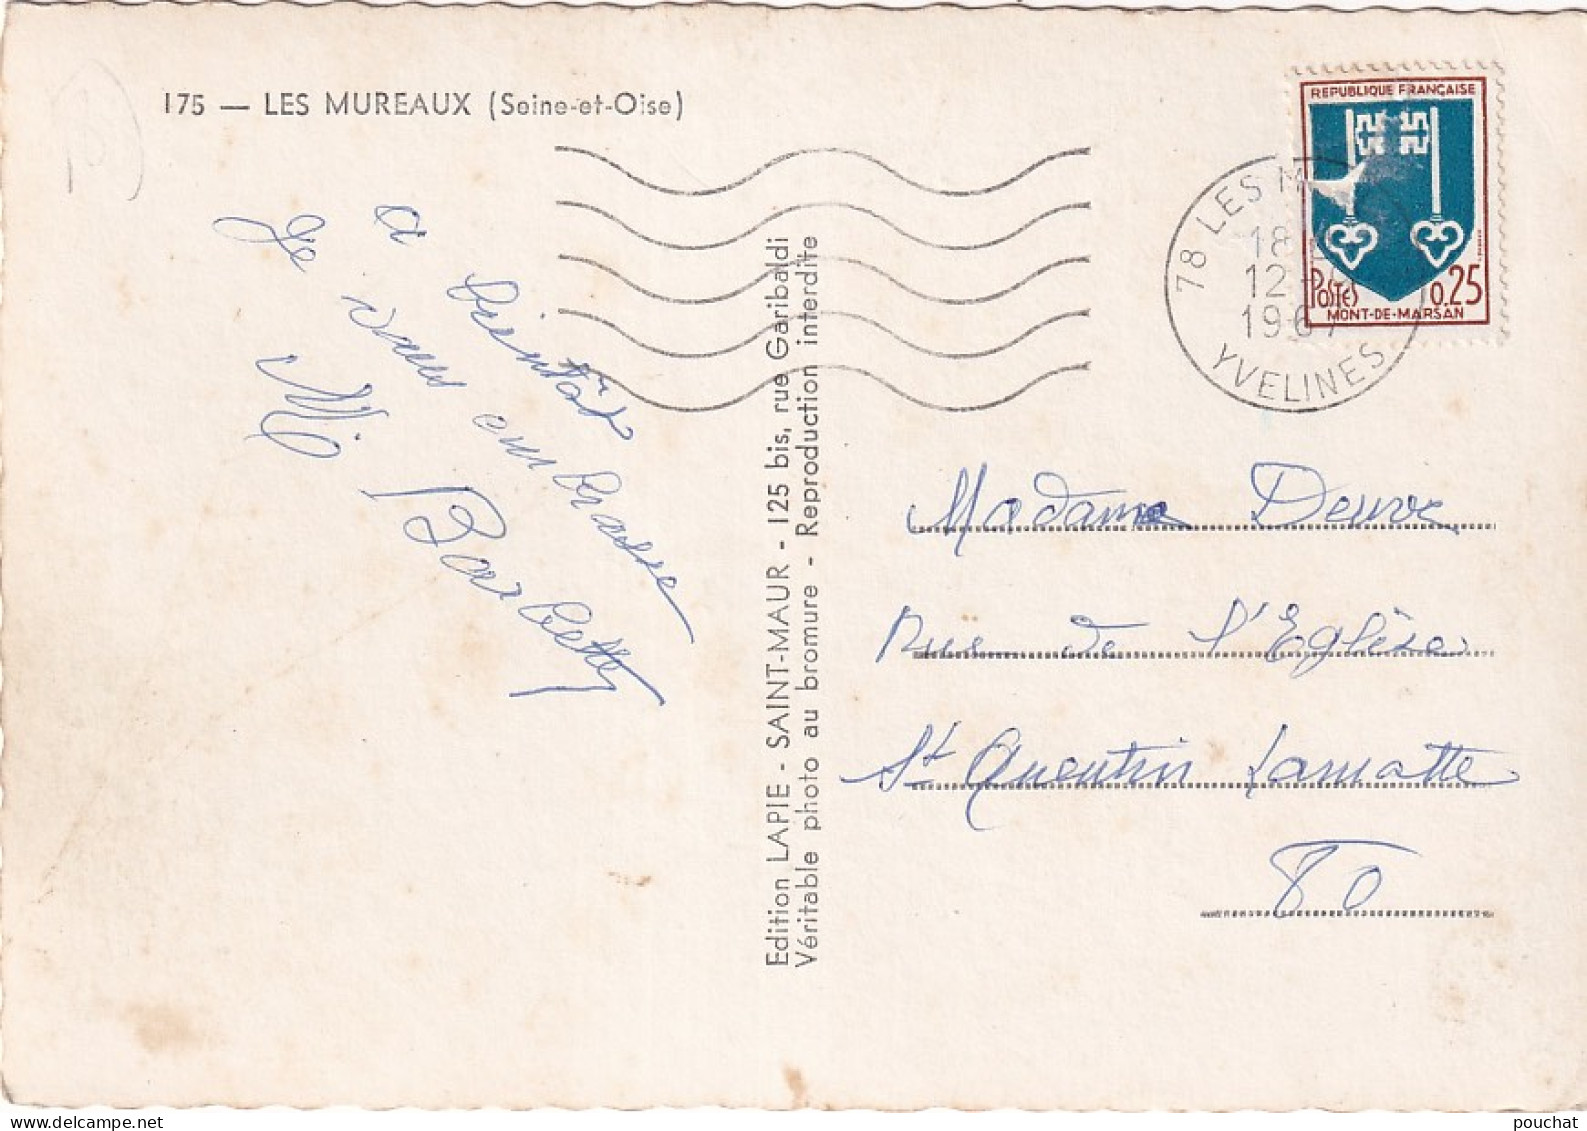 175 — LES MUREAUX (Seine-et-Oise)
a bientôt
Je vous embrasse
M Barbettes
Edition LAPIE - SAINT-MAUR - 125 bis, rue Garibaldi
Véritable photo au bromure - Reproduction interdite
REPUBLIQUE FRANÇAISE
Postes 0.25
MONT-DE-MARSAN
78 LES M
18
12
1967
YVELINES
Madame Deuve
Rue de l'Eglise
St Quentin Lamotte
80
pouchat